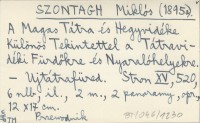 SZONTAGH Miklós (1895a).
A Magas Tátra és Hegyvidéke
Különös Tekintettel a Tátravi-
déki Fürdőkre és Nyaralóhelyekre.
- Ujtátrafüred. Stron XV, 520,
6 nlb. il., 2 m., 2 panoramy, opr.,
12 x 17 cm.
Przewodnik